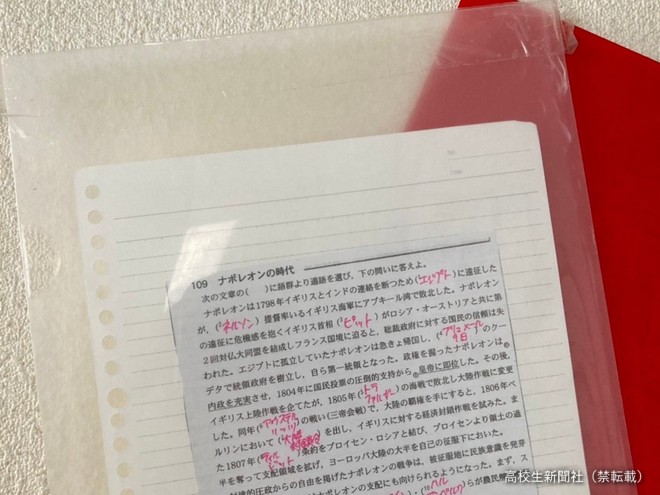 109 ナポレオンの時代
次の文章の( )に語群より適語を選び，下の問いに答えよ。
ナポレオンは1798年イギリスとインドの連絡を断つため(¹エジプト)に遠征した
が，(²ネルソン)提督率いるイギリス海軍にアブキール湾で敗北した。ナポレオン
の遠征に危機感を抱くイギリス首相(³ピット)がロシア・オーストリアと共に第
2回対仏大同盟を結成しフランス国境に迫ると，総裁政府に対する国民の信頼は失
われた。エジプトに孤立していたナポレオンは急きょ帰国し，(⁴ブリュメール18日)のクー
デタで統領政府を樹立し，自ら第一統領となった。政権を握ったナポレオンは
内政を充実させ，1804年に国民投票の圧倒的支持から皇帝に即位した。その後，
イギリス上陸作戦を企てたが，1805年(⁵トラファルガー)の海戦で敗北し大陸作戦に変更
した。同年(⁶アウステルリッツ)の戦い(三帝会戦)で，大陸の覇権を手にすると，1806年ベ
ルリンにおいて(⁷大陸封鎖令)を出し，イギリスに対する経済封鎖作戦を試みた。ま
た1807年(⁸ティルジット)条約をプロイセン・ロシアと結び，プロイセンより領土の過
半を奪って支配領域を拡げ，ヨーロッパ大陸の大半を自己の征服下においた。
圧政からの自由を掲げたナポレオンの戦争は，被征服地に民族意識を発芽
ナポレオンの支配にも向けられるようになった。まず，ス
高校生新聞社（禁転載）